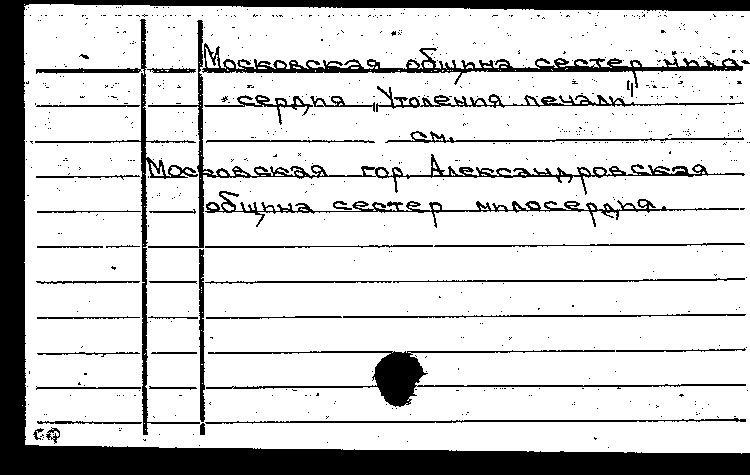 Московская община сестер мило-
сердия „Утоления печали".
см.
Московская гор. Александровская
община сестер милосердия.
сф